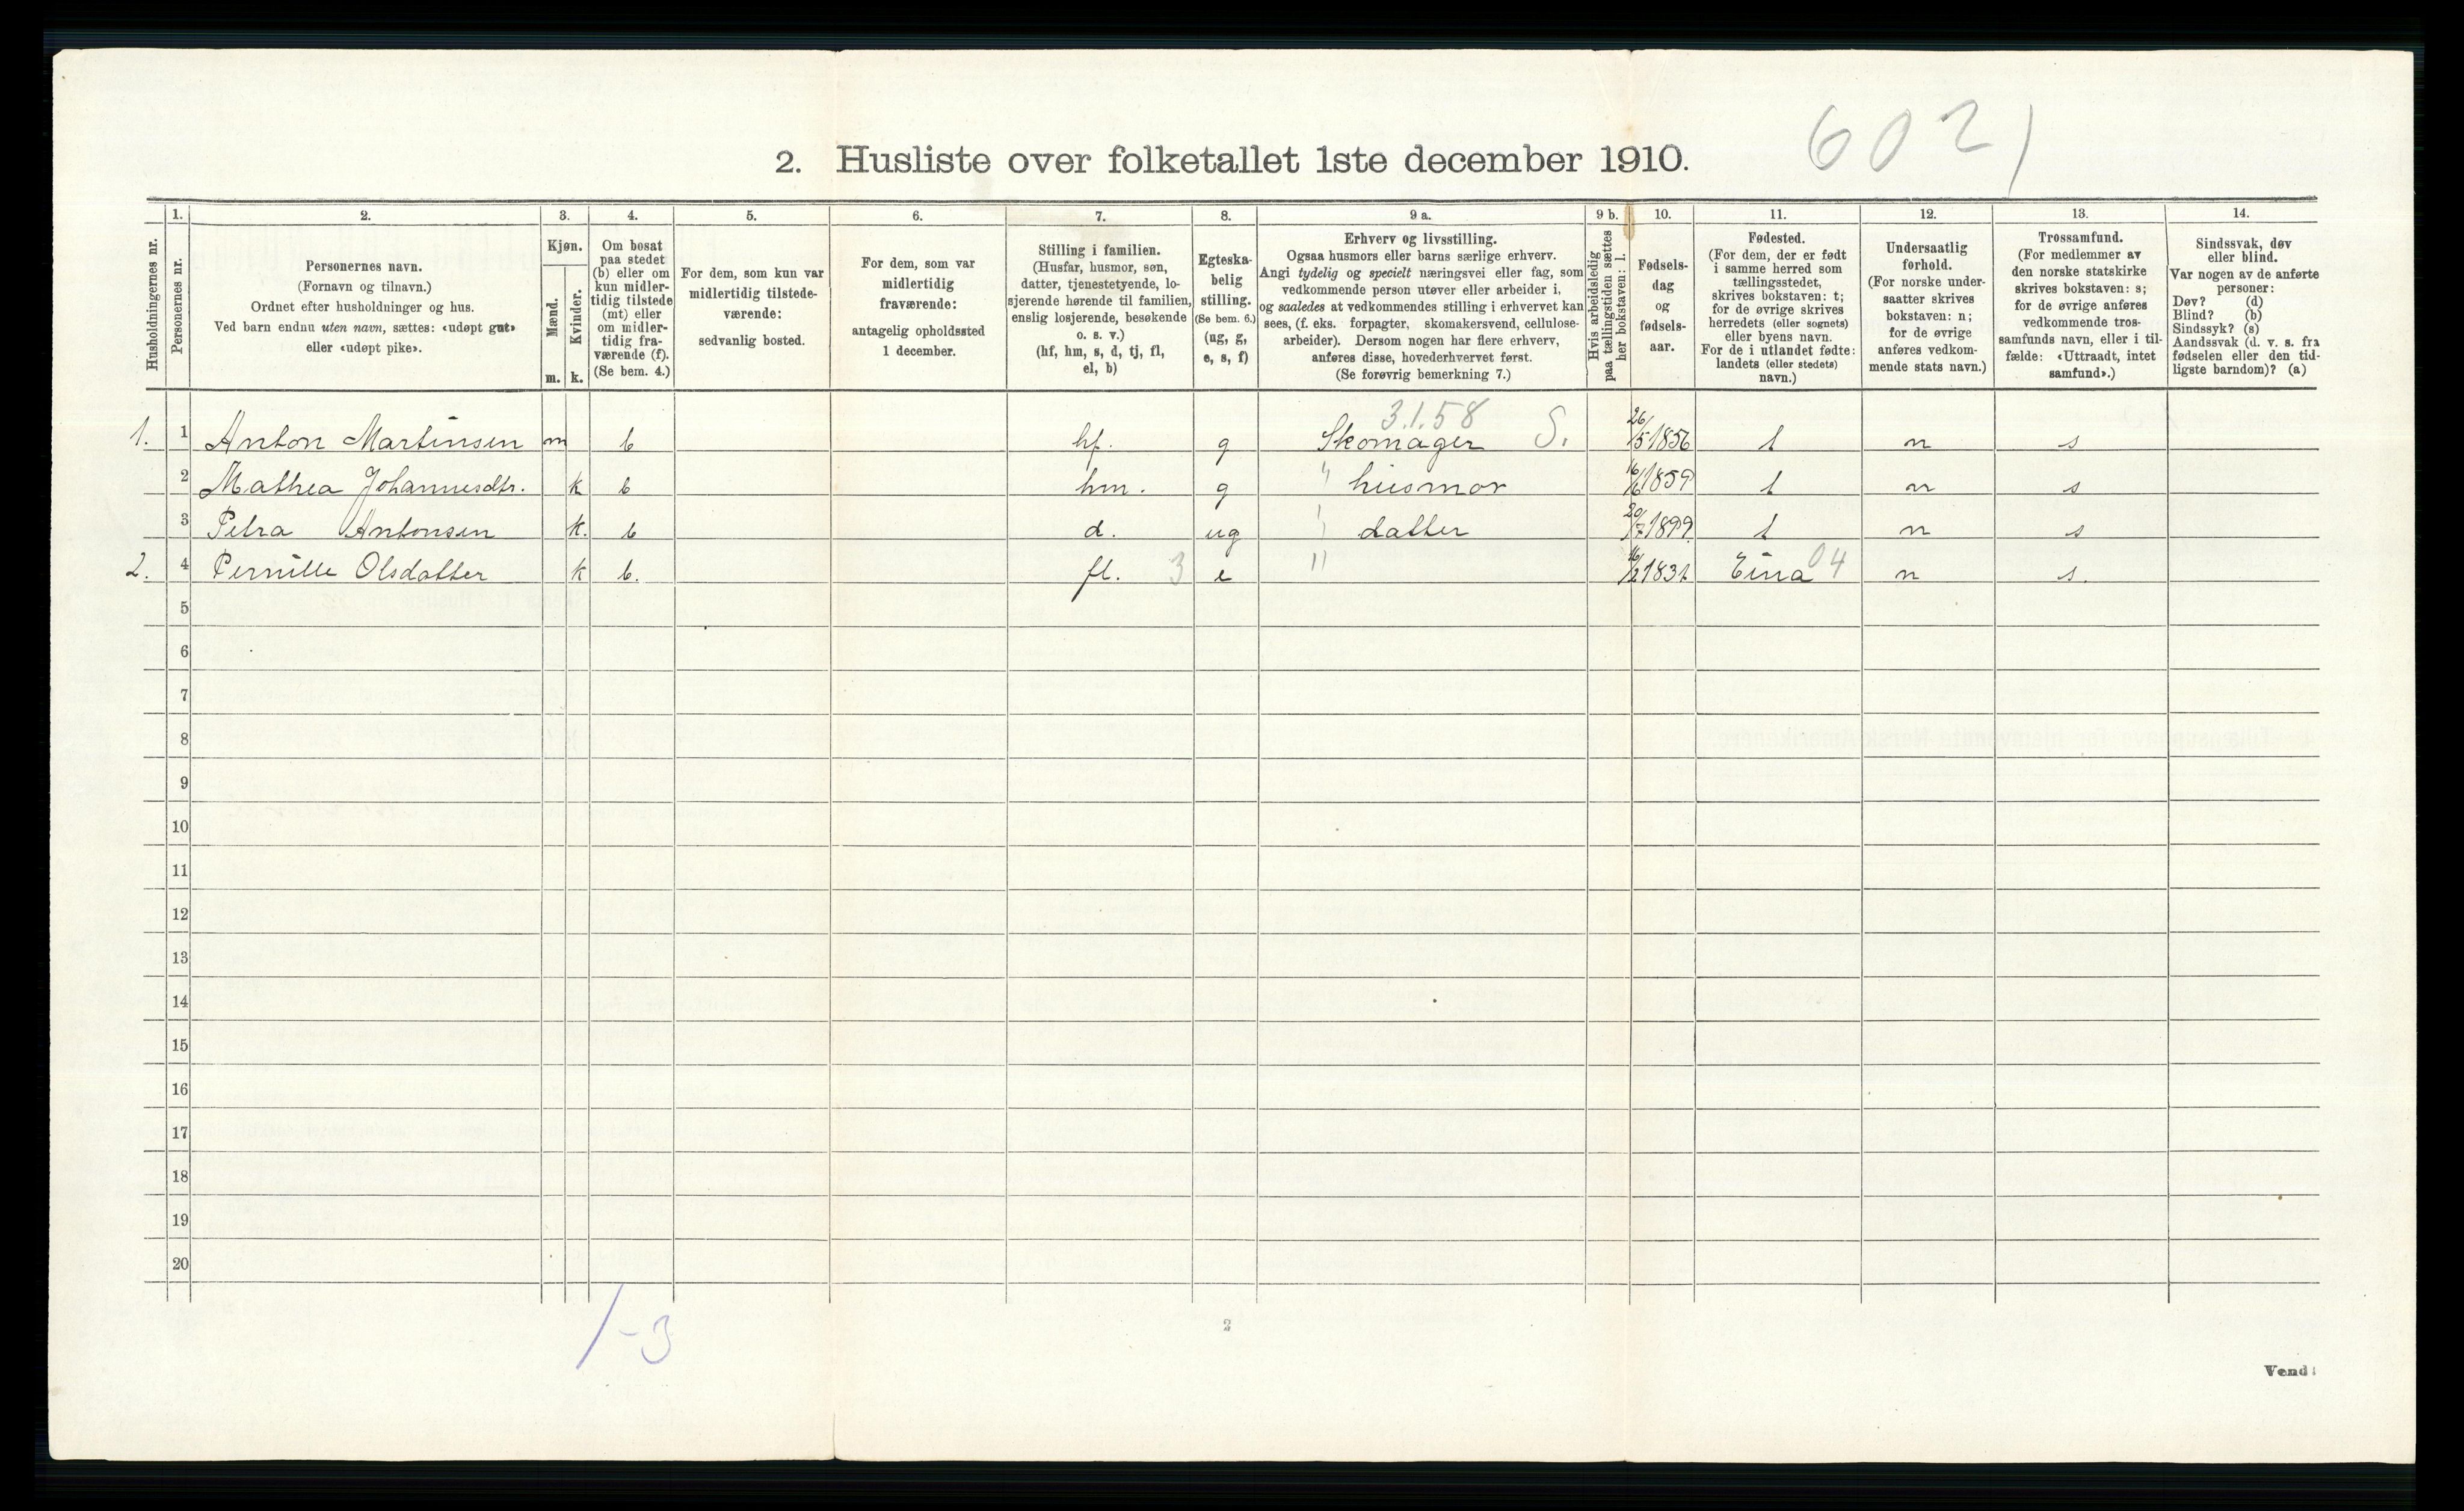 6021
2. Husliste over folketallet 1ste december 1910.
Husholdningernes nr.
1.
Personernes nr.
2.
Personernes navn.
(Fornavn og tilnavn.)
Ordnet efter husholdninger og hus.
Ved barn endnu uten navn, sættes: «udøpt gut»
eller «udøpt pike».
3.
Kjøn.
Mænd.
m.
Kvinder.
k.
4.
Om bosat
paa stedet
(b) eller om
kun midler-
tidig tilstede
(mt) eller
om midler-
tidig fra-
værende (f).
(Se bem. 4.)
5.
For dem, som kun var
midlertidig tilstede-
værende:
sedvanlig bosted.
6.
For dem, som var
midlertidig
fraværende:
antagelig opholdssted
1 december.
7.
Stilling i familien.
(Husfar, husmor, søn,
datter, tjenestetyende, lo-
sjerende hørende til familien,
enslig losjerende, besøkende
o. s. v.)
(hf, hm, s, d, tj, fl,
el, b)
8.
Egteska-
belig
stilling.
(Se bem. 6.)
(ug, g,
e, s, f)
9 a.
Erhverv og livsstilling.
Ogsaa husmors eller barns særlige erhverv.
Angi tydelig og specielt næringsvei eller fag, som
vedkommende person utøver eller arbeider i,
og saaledes at vedkommendes stilling i erhvervet kan
sees, (f. eks. forpagter, skomakersvend, cellulose-
arbeider). Dersom nogen har flere erhverv,
anføres disse, hovederhvervet først.
(Se forøvrig bemerkning 7.)
9 b.
Hvis arbeidsledig
paa tællingstiden sættes
her bokstaven: l.
10.
Fødsels-
dag
og
fødsels-
aar.
11.
Fødested.
(For dem, der er født
i samme herred som
tællingsstedet,
skrives bokstaven: t;
for de øvrige skrives
herredets (eller sognets)
eller byens navn.
For de i utlandet fødte:
landets (eller stedets)
navn.)
12.
Undersaatlig
forhold.
(For norske under-
saatter skrives
bokstaven: n;
for de øvrige
anføres vedkom-
mende stats navn.)
13.
Trossamfund.
(For medlemmer av
den norske statskirke
skrives bokstaven: s;
for de øvrige anføres
vedkommende tros-
samfunds navn, eller i til-
fælde: «Uttraadt, intet
samfund».)
14.
Sindssvak, døv
eller blind.
Var nogen av de anførte
personer:
Døv? (d)
Blind? (b)
Sindssyk? (s)
Aandssvak (d. v. s. fra
fødselen eller den tid-
ligste barndom)? (a)
3.1.58
1. 1 Anton Martinsen m b hf. g Skomager S. 26/5 1856 t n s
2 Mathea Johannesdtr. k b hm. g " husmor 16/6 1859 t n s
3 Petra Antonsen k. b d. ug " datter 20/7 1899 t n s
2. 4 Pernille Olsdatter k b. fl. 3 e " 16/2 1831 Eina 04 n s.
5
6
7
8
9
10
11
12
13
14
15
16
17
18
19
20
1-3
2
Vend!